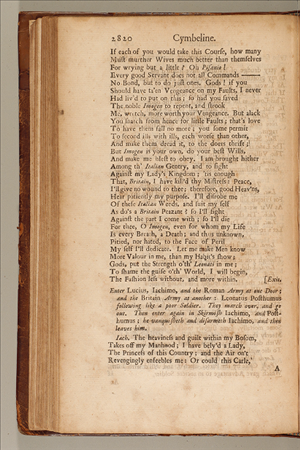 2820 Cymbeline.
If each of you would take this Course, how many
Must murther Wives much better than themselves
For wrying but a little? Oh Pisanio!
Every good Servant does not all Commands ———
No Bond, but to do just ones. Gods! if you
Should have ta'en Vengeance on my Faults, I never
Had liv'd to put on this; so had you saved
The noble Imogen to repent, and strook
Me, wretch, more worth your Vengeance. But alack
You snatch from hence for little Faults; that's love
To have them fall no more; you some permit
To second ills with ills, each worse than other,
And make them dread it, to the doers thrift;
But Imogen is your own, do your best Wills,
And make me blest to obey. I am brought hither
Among th' Italian Gentry, and to fight
Against my Lady's Kingdom; 'tis enough
That, Britain, I have kill'd thy Mistress: Peace,
I'll give no wound to thee; therefore, good Heav'ns,
Hear patiently my purpose. I'll disrobe me
Of these Italian Weeds, and suit my self
As do's a Britain Peazant; so I'll fight
Against the part I come with; so I'll die
For thee, O Imogen, even for whom my Life
Is every Breath, a Death; and thus unknown,
Pitied, nor hated, to the Face of Peril
My self I'll dedicate. Let me make Men know
More Valour in me, than my Habit's show;
Gods, put the Strength o'th' Leonati in me;
To shame the guise o'th' World, I will begin,
The Fashion less without, and more within. [Exit.
Enter Lucius, Iachimo, and the Roman Army at one Door;
and the Britain Army at another: Leonatus Posthumus
following like a poor Soldier. They march over, and go
out. Then enter again in Skirmish Iachimo, and Post-
humus; he vanquisheth and disarmeth Iachimo, and then
leaves him.
Iach. The heaviness and guilt within my Bosom,
Takes off my Manhood; I have bely'd a Lady,
The Princess of this Country; and the Air on't
Revengingly enfeebles me: Or could this Carle,
A